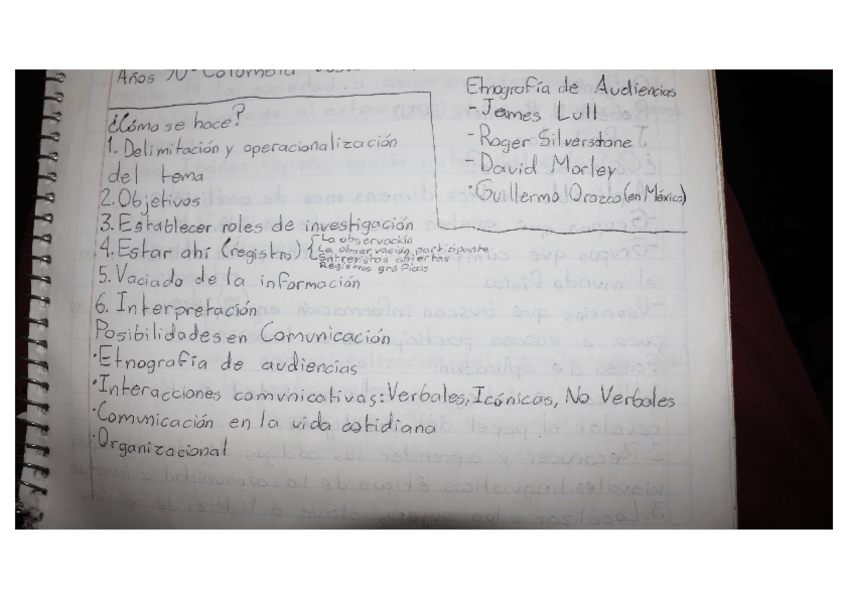 Años 70 - Colombia
¿Cómo se hace?
1. Delimitación y operacionalización
del tema
2. Objetivos
3. Establecer roles de investigación
4. Estar ahí (registro) { - La observación
La observación participante
Entrevistas abiertas
Registros gráficos
5. Vaciado de la información
6. Interpretación
Posibilidades en Comunicación
· Etnografía de audiencias
· Interacciones comunicativas: Verbales, Icónicas, No Verbales
· Comunicación en la vida cotidiana
· Organizacional
Etnografía de Audiencias
- James Lull
- Roger Silverstone
- David Morley
· Guillermo Orozco (en México)